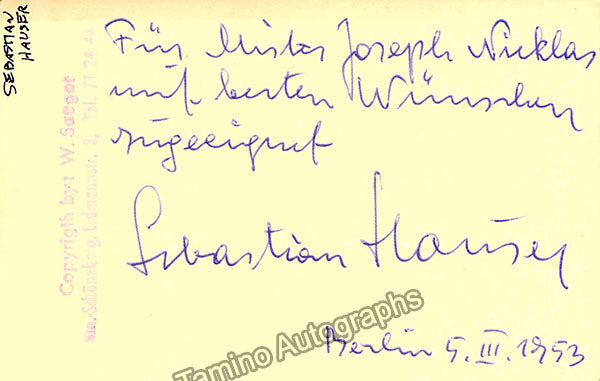 SEBASTIAN
HAUSER
Für Mister Joseph Nicklas
mit besten Wünschen
zugeeignet
Sebastian Hauser
Berlin 5. III. 1953
Copyrigth by: W. Saeger
3, Tel. 71 24 44
Tamino Autographs